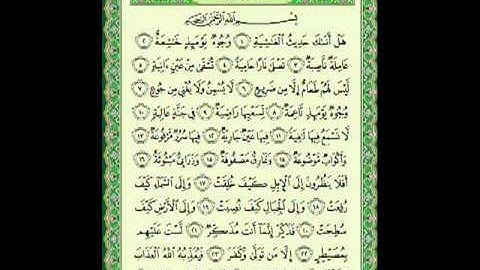 بِسْمِ اللَّهِ الرَّحْمَٰنِ الرَّحِيمِ
هَلْ أَتَىٰكَ حَدِيثُ ٱلْغَٰشِيَةِ ١ وُجُوهٌ يَوْمَئِذٍ خَٰشِعَةٌ ٢
عَامِلَةٌ نَّاصِبَةٌ ٣ تَصْلَىٰ نَارًا حَامِيَةً ٤ تُسْقَىٰ مِنْ عَيْنٍ ءَانِيَةٍ ٥
لَّيْسَ لَهُمْ طَعَامٌ إِلَّا مِن ضَرِيعٍ ٦ لَّا يُسْمِنُ وَلَا يُغْنِى مِن جُوعٍ ٧
وُجُوهٌ يَوْمَئِذٍ نَّاعِمَةٌ ٨ لِّسَعْيِهَا رَاضِيَةٌ ٩ فِى جَنَّةٍ عَالِيَةٍ ١٠
لَّا تَسْمَعُ فِيهَا لَٰغِيَةً ١١ فِيهَا عَيْنٌ جَارِيَةٌ ١٢ فِيهَا سُرُرٌ مَّرْفُوعَةٌ ١٣
وَأَكْوَابٌ مَّوْضُوعَةٌ ١٤ وَنَمَارِقُ مَصْفُوفَةٌ ١٥ وَزَرَابِىُّ مَبْثُوثَةٌ ١٦
أَفَلَا يَنظُرُونَ إِلَى ٱلْإِبِلِ كَيْفَ خُلِقَتْ ١٧ وَإِلَى ٱلسَّمَآءِ كَيْفَ
رُفِعَتْ ١٨ وَإِلَى ٱلْجِبَالِ كَيْفَ نُصِبَتْ ١٩ وَإِلَى ٱلْأَرْضِ كَيْفَ
سُطِحَتْ ٢٠ فَذَكِّرْ إِنَّمَآ أَنتَ مُذَكِّرٌ ٢١ لَّسْتَ عَلَيْهِم
بِمُصَيْطِرٍ ٢٢ إِلَّا مَن تَوَلَّىٰ وَكَفَرَ ٢٣ فَيُعَذِّبُهُ ٱللَّهُ ٱلْعَذَابَ